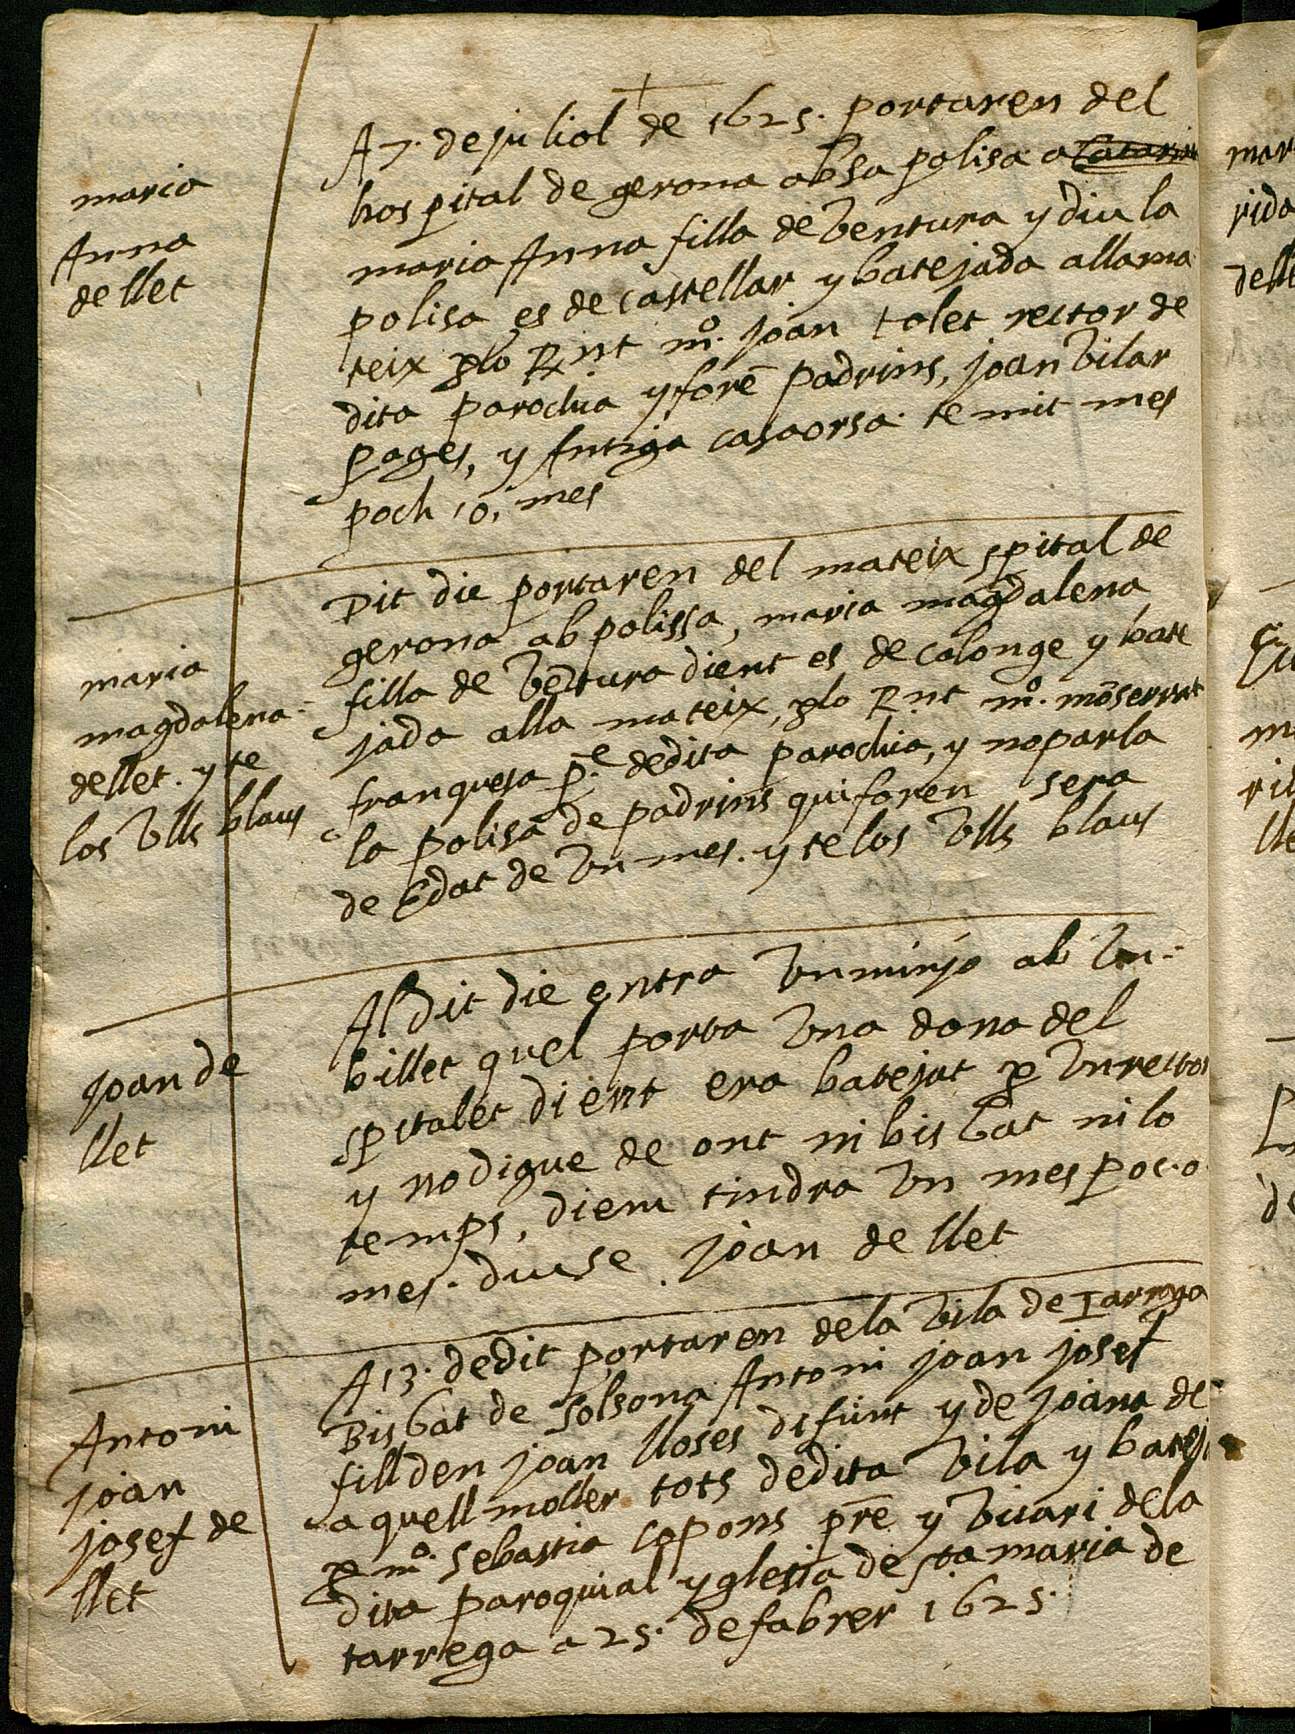 maria
Anna
de llet
A 7. de juliol de 1625. portaren del
hospital de gerona ab sa polisa a Catarin
maria Anna filla de Ventura y diu la
polisa es de castellar y batejada alla ma
teix plo Rnt mº. joan tolet rector de
dita parochia y forē padrins, joan Vilar
pages, y Antiga casaorsa te mit mes
poch, o, mes
maria
magdalena
de llet. y te
los Vlls blaus
Dit die portaren del mateix spital de
gerona ab polissa, maria magdalena
filla de Vētura dient es de calonge y bate
jada alla mateix, plo Rnt mº. mōserrat
franquesa p.e de dita parochia, y no parla
la polisa de padrins qui foren sera
de Edat de Vn mes. y te los Vlls blaus
joan de
llet
Al dit die entra Vn minyo ab Vn
billet quel porta Vna dona del
spitalet dient era batejat p Vn rector
y no digue de ont ni bisbat ni lo
temps, diem tindra Vn mes poc o
mes. diuse joan de llet
Antoni
joan
josef de
llet
A 13. de dit portaren de la Vila de Tarrega
Bisbat de Solsona Antoni joan josef
fill den joan lloses difunt y de joana de
aquell moller tots de dita Vila y batej
p mº. Sebastia copons prē y Vicari de la
dita paroquial yglesia de sta maria de
tarrega a 25. de fabrer 1625.